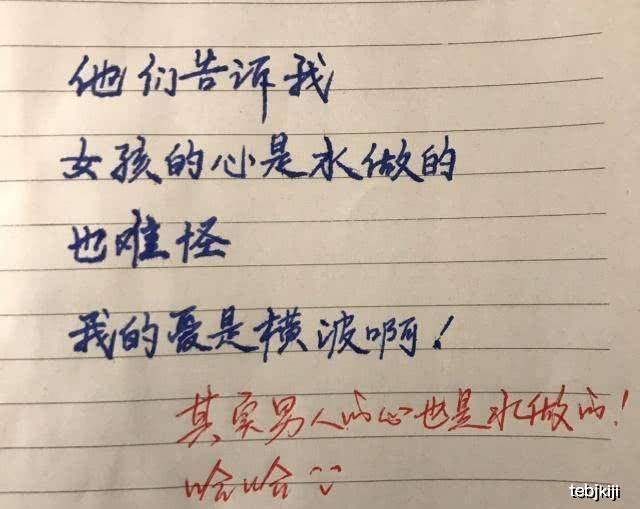 他们告诉我
女孩的心是水做的
也难怪
我的憂是横波啊！
其实男人的心也是水做的！
哈哈
tebjkiji